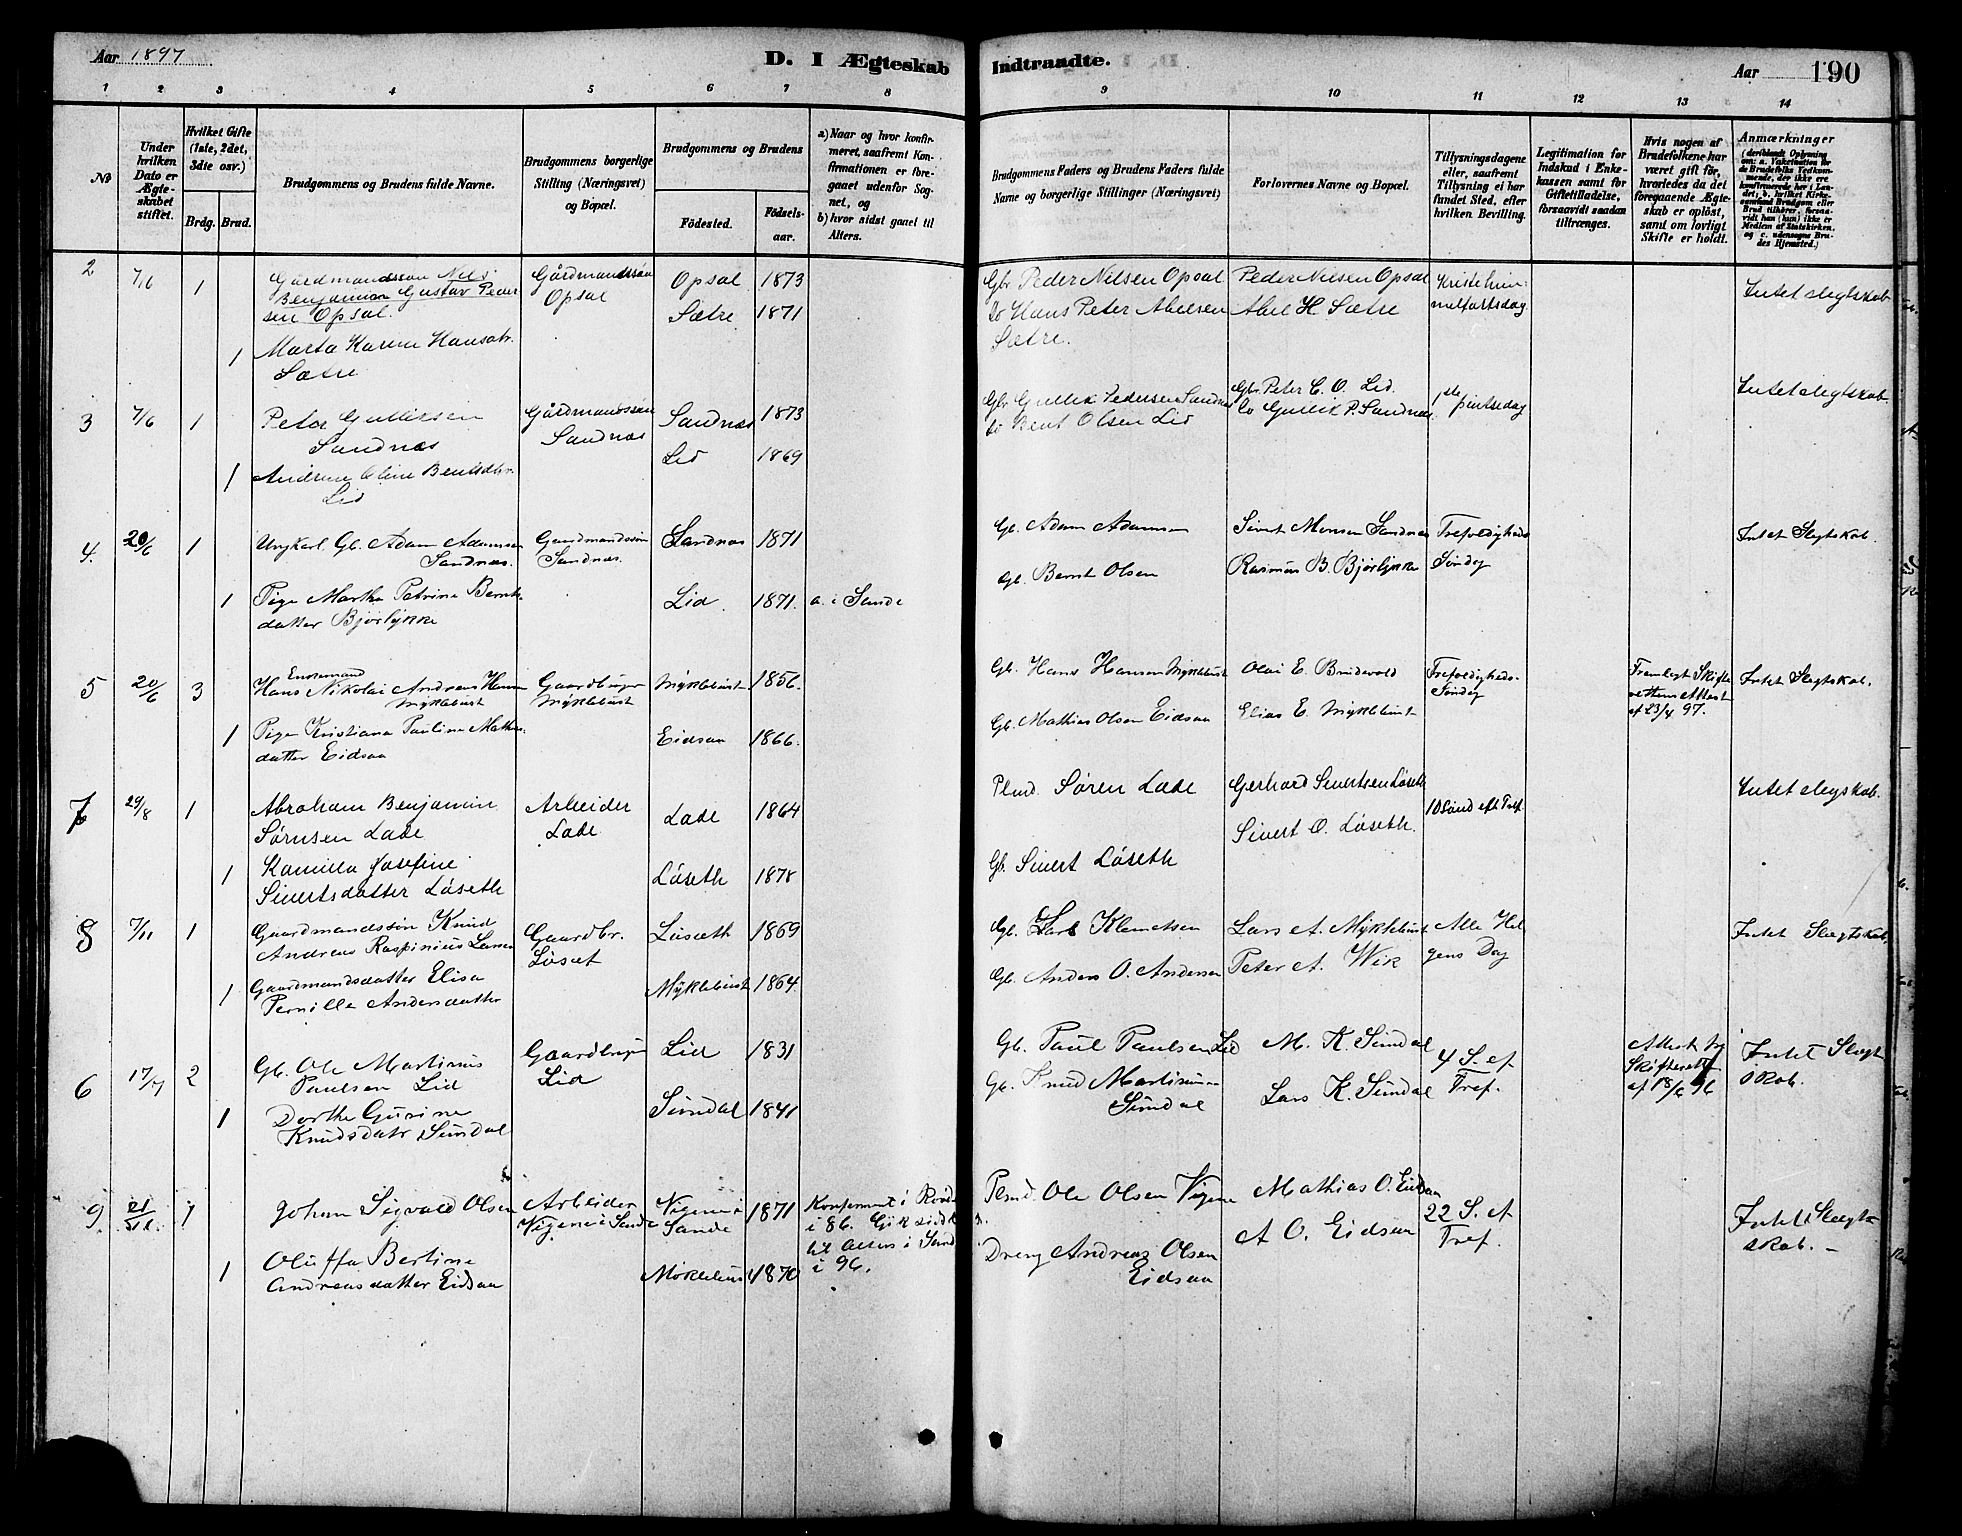 Aar 1897
D. I Ægteskab
Indtraadte.
Aar 190
1 2 3 4 5 6 7 8
9 10 11 12 13 14
No
Under hvilken Dato er Ægteskabet stiftet.
Hvilket Gifte (1ste, 2det, 3die osv.)
Brdg. Brud.
Brudgommens og Brudens fulde Navne.
Brudgommens borgerlige Stilling (Næringsvei) og Bopæl.
Brudgommens og Brudens
Fødested. Fødselsaar.
a) Naar og hvor konfirmeret, saafremt Konfirmationen er foregaaet udenfor Sognet, og
b) hvor sidst gaaet til Alters.
Brudgommens Faders og Brudens Faders fulde Navne og borgerlige Stillinger (Næringsvei)
Forlovernes Navne og Bopæl.
Tillysningsdagene eller, saafremt Tillysning ei har fundet Sted, efter hvilken Bevilling.
Legitimation for Indskud i Enkekassen samt for Giftetilladelse, forsaavidt saadan tiltrænges.
Hvis nogen af Brudefolkene har været gift før, hvorledes da det foregaaende Ægteskab er opløst, samt om lovligt Skifte er holdt.
Anmærkninger
2 7/6 1 Gårdmandssøn Nils Benjamin Gustav Pedersen Opsal. Gårdmandssøn Opsal Opsal 1873
1 Marta Karine Hansdtr. Sætre Sætre 1871
Gbr. Peder Nilsen Opsal Peder Nilsen Opsal Kristi himmelfartsdag Intet slegtskab
do Hans Peter Abelsen Sætre. Abel H. Sætre
3 7/6 1 Peter Gulliksen Sandnæs Gårdmandssøn Sandnæs Sandnæs 1873
1 Andrine Oline Bentsdtr. Lid Lid 1869
Gbr Gullik Pedersen Sandnæs Gbr. Peter C. O. Lid. 1ste pintsedag Intet slegtskab
do Bent Olsen Lid do Gullik P. Sandnæs
4. 20/6 1 Ungkarl Gb. Adam Adamsen Sandnæs. Gaardmandssøn Sandnæs. Sandnæs 1871
1 Pige Marthe Petrine Berntsdatter Bjørlykke Lid. 1871. a. i Sande
Gb. Adam Adamsen Sivert Monsen Sandnæs Trefoldigheds Søndag Intet Slegtskab.
Gb. Bernt Olsen Rasmus B. Bjørlykke
5 20/6 3 Enkemand Hans Nikolai Andreas Hansen Myklebust Gaardbruger Myklebust Myklebust 1856.
1 Pige Kristiane Pauline Mathiasdatter Eidsaa Eidsaa 1866.
Gb. Hans Hansen Myklebust Olai E. Breidvold Trefoldigheds-Søndag Fremlagt Skifterettens Attest af 23/4 97. Intet Slegtskab.
Gb. Mathias Olsen Eidsaa Elias E. Myklebust
7 29/8 1 Abraham Benjamin Sørnsen Lade Arbeider Lade Lade 1864
1 Kamilla Josefine Sivertsdatter Løseth Løseth 1878
Plmd. Søren Lade Gerhard Sivertsen Løseth 10 sønd eft Tref Intet slegskab.
Gb. Sivert Løseth Sivert O. Løseth.
8 7/11 1 Gaardmandssøn Knud Andreas Raspinius Larsen Gaardbr. Løset Løsæth 1869
1 Gaardmandsdatter Elisa Pernille Andersdatter Myklebust 1864.
Gb. Lars Klemetsen Lars A. Myklebust Alle Helgens Dag Intet Slegtskab.
Gb. Anders O. Andersen Peter A. Wik
6 17/7 2 Gb. Ole Martinus Paulsen Lid Gaardbruger Lid Lid 1831
1 Dorthe Gurine Knudsdatr Sundal Sundal 1841
Gb. Paul Paulsen Lid M. K. Sundal 4 S. ef Tref. Attest fra Skifterett af 18/6 96 Intet Slegtskab.
Gb. Knud Martinus Sundal Lars K. Sundal
9 21/11 1 Johan Sigvald Olsen Arbeider Vigene i Sande Vigene i Sande 1871 Konfirmert i Rovde i 86. Gik sidst til Alters i Sande i 96.
1 Oluffa Bertine Andreasdatter Eidsaa Myklebust 1870
Plmd. Ole Olsen Vigene Mathias O. Eidsaa 22 S. ef Tref. Intet Slegtskab.
Dreng Andreas Olsen Eidsaa A O. Eidsaa